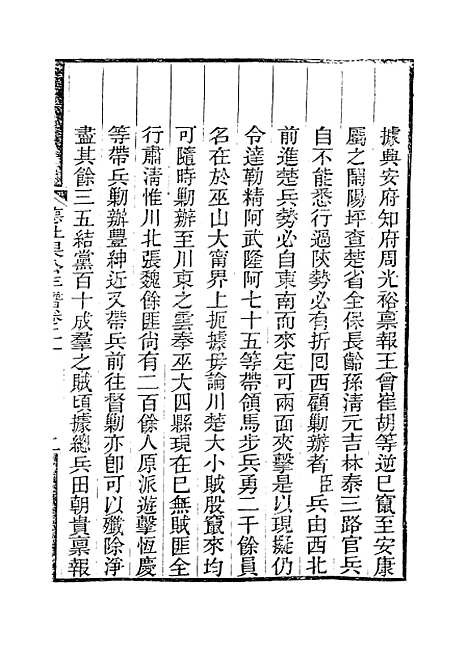 據興安府知府周光裕稟報王曾崔胡等逆已竄至安康
屬之鬧陽坪查楚省全保長齡孫清元吉林泰三路官兵
自不能悉行過陝勢必有折回西顧勦辦者臣兵由西北
前進楚兵勢必自東南而來定可兩面夾擊是以現擬仍
令達勒精阿武隆阿七十五等帶領馬步兵勇二千餘員
名在於巫山大甯界上扼據毋論川楚大小賊股竄來均
可隨時勦辦至川東之雲奉巫大四縣現在已無賊匪全
行肅清惟川北張魏餘匪尙有二百餘人原派遊擊恆慶
等帶兵勦辦豐紳近又帶兵前往督勦亦卽可以殲除淨
盡其餘三五結黨百十成羣之賊頃據總兵田朝貴稟報